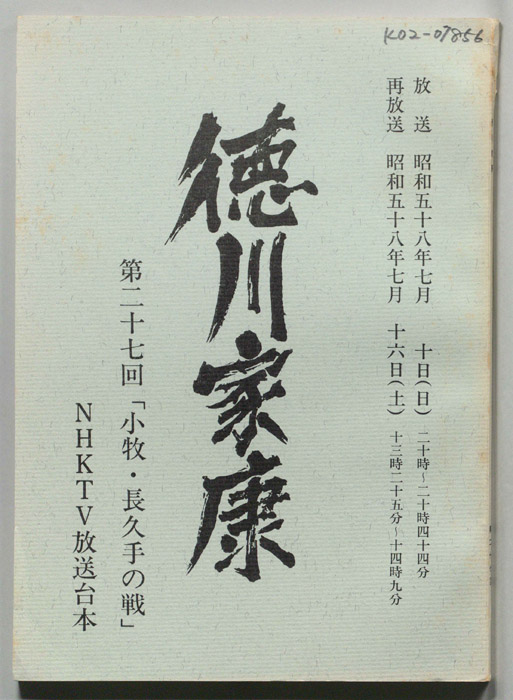 K02-07856
放送 昭和五十八年七月 十日(日) 二十時~二十時四十四分
再放送 昭和五十八年七月 十六日(土) 十三時二十五分~十四時九分
徳川家康
第二十七回「小牧・長久手の戦」
NHKTV放送台本